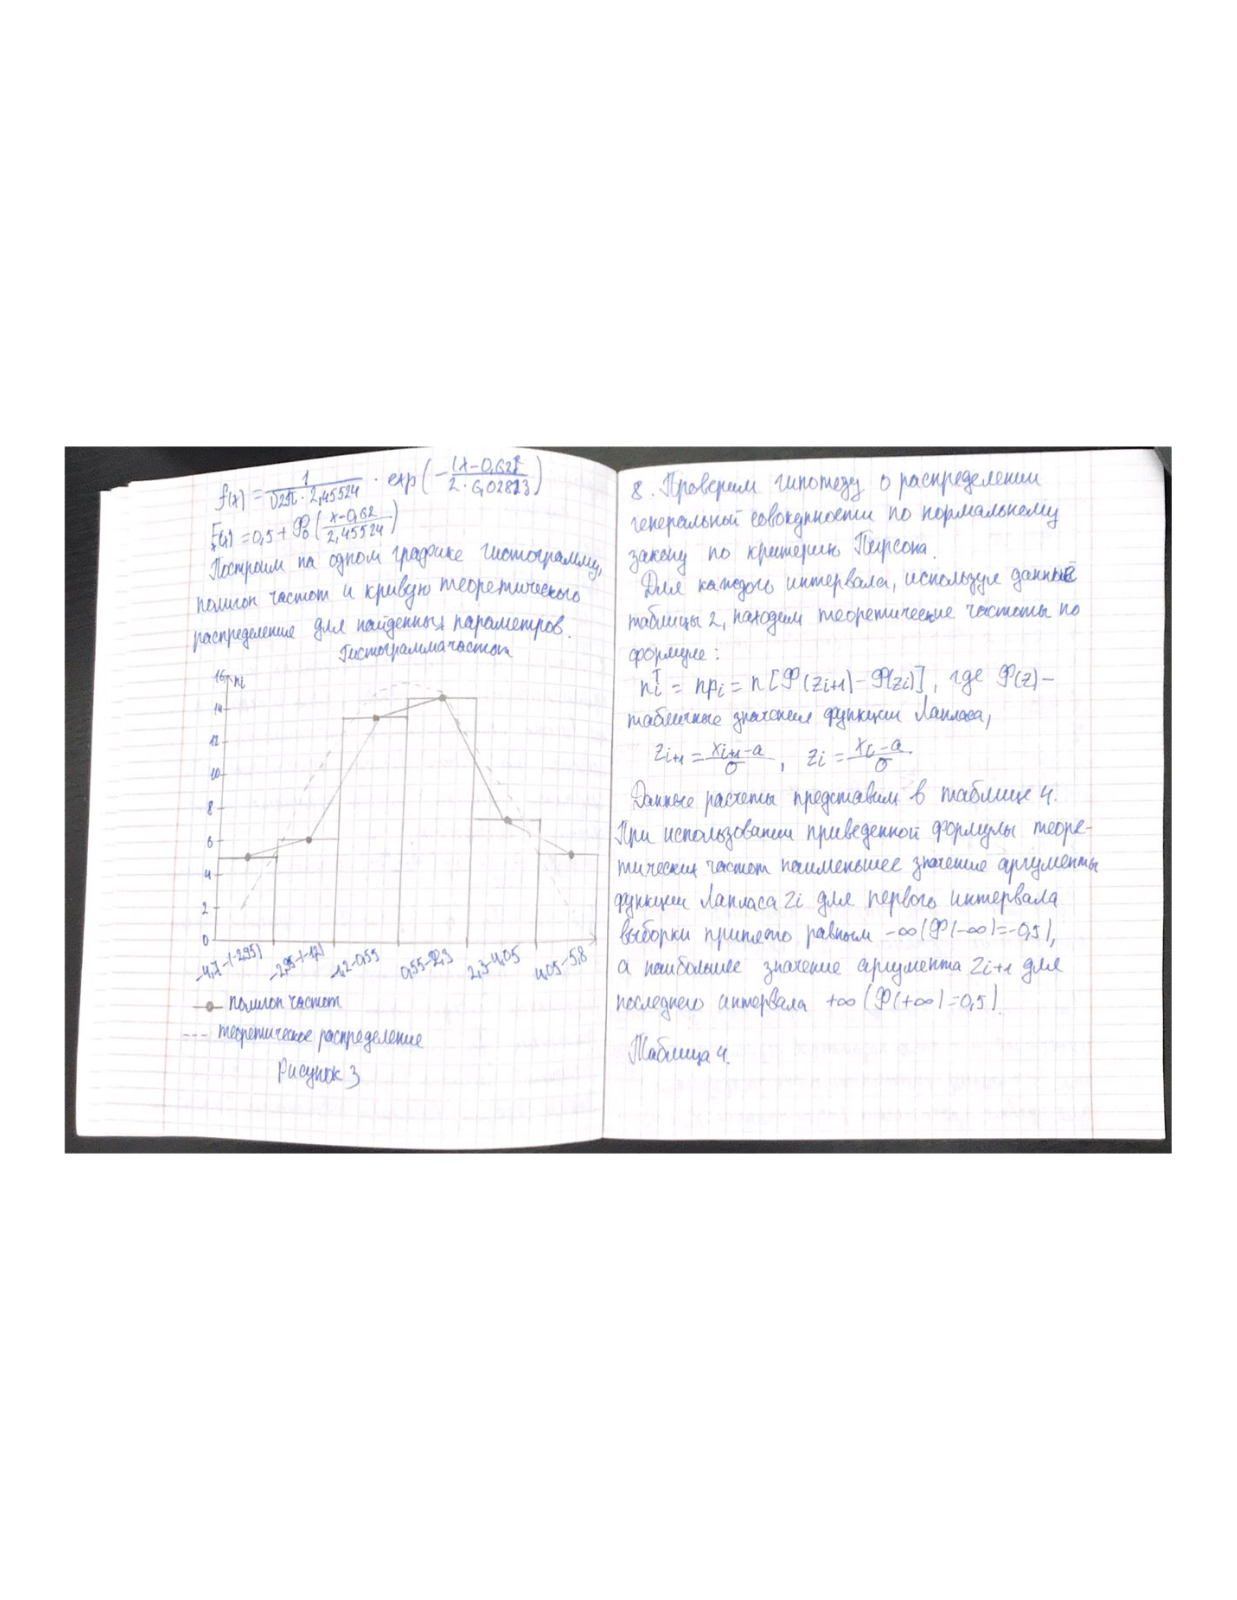 f(x) = 1/(√2π · 2,45524) · exp(-(x-0,62)²/(2 · 6,02823))
F(x) = 0,5 + Φ₀((x-0,62)/2,45524)
Построим на одном графике гистограмму,
полигон частот и кривую теоретического
распределение для найденных параметров.
Гистограмма частот
16 ni
14
12
10
8
6
4
2
0
-4,7-(-2,95) -2,95-(-1,2) -1,2-0,55 0,55-2,3 2,3-4,05 4,05-5,8
полигон частот
--- теоретическое распределение
Рисунок 3
8. Проверим гипотезу о распределении
генеральной совокупности по нормальному
закону по критерию Пирсона.
Для каждого интервала, используя данные
таблицы 2, находим теоретические частоты по
формуле:
niᵀ = npi = n[Φ(zi+1) - Φ(zi)], где Φ(z) -
табличные значения функции Лапласа,
zi+1 = (xi+1-a)/σ, zi = (xi-a)/σ.
Данные расчеты представим в таблице 4.
При использовании приведенной формулы теоре-
тических частот наименьшее значение аргументы
функции Лапласа zi для первого интервала
выборки принято равным -∞ (Φ(-∞)=-0,5),
а наибольшее значение аргумента zi+1 для
последнего интервала +∞ (Φ(+∞)=0,5).
Таблица 4.